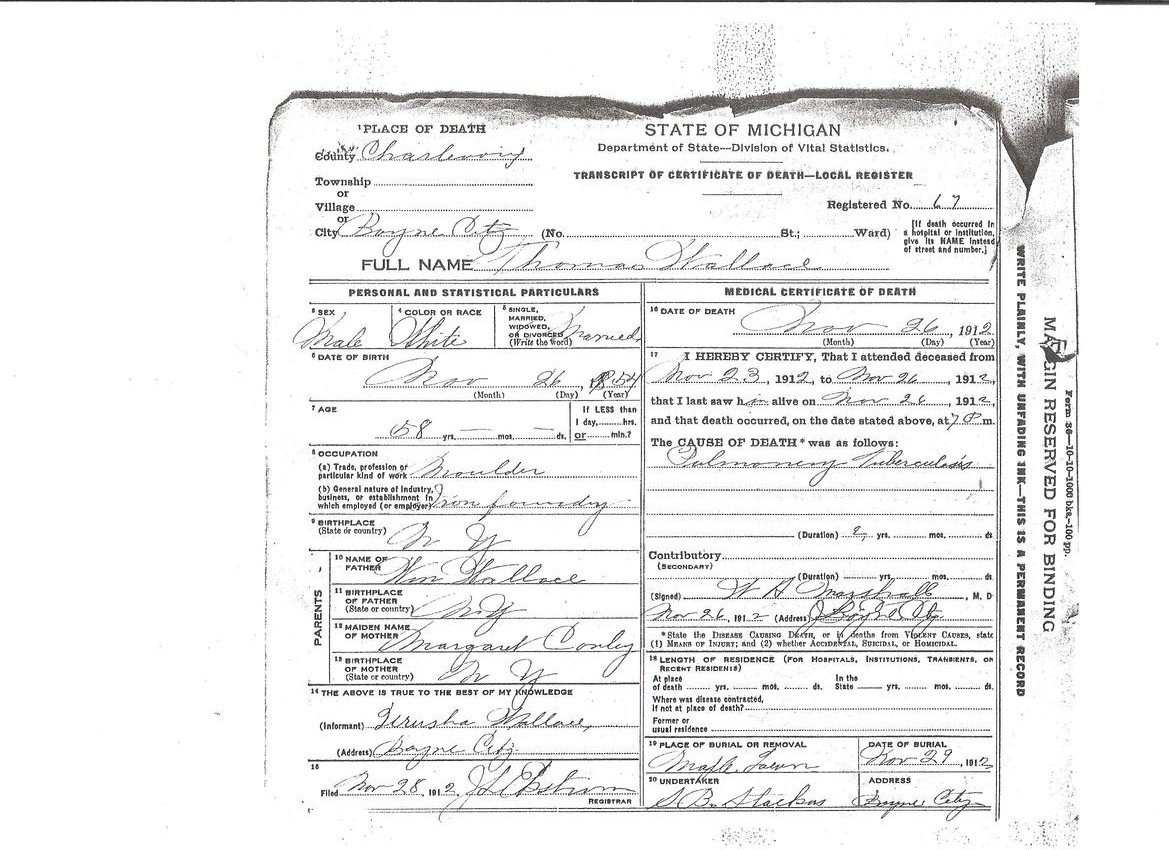 1 PLACE OF DEATH
County Charlevoix
Township
or
Village
or
City Boyne City (No. St.; Ward)
STATE OF MICHIGAN
Department of State—Division of Vital Statistics.
TRANSCRIPT OF CERTIFICATE OF DEATH—LOCAL REGISTER
Registered No. 67
[If death occurred in
a hospital or institution,
give its NAME instead
of street and number.]
FULL NAME Thomas Wallace
PERSONAL AND STATISTICAL PARTICULARS
3 SEX
Male
4 COLOR OR RACE
White
5 SINGLE,
MARRIED,
WIDOWED,
OR DIVORCED
(Write the word) Married
6 DATE OF BIRTH
Nov 26, 1854
(Month) (Day) (Year)
7 AGE
58 yrs. — mos. — ds.
If LESS than
1 day, hrs.
or min.?
8 OCCUPATION
(a) Trade, profession or
particular kind of work Moulder
(b) General nature of Industry,
business, or establishment in
which employed (or employer) Iron foundry
9 BIRTHPLACE
(State or country)
N Y
PARENTS
10 NAME OF
FATHER Wm Wallace
11 BIRTHPLACE
OF FATHER
(State or country) N Y
12 MAIDEN NAME
OF MOTHER Margaret Conley
13 BIRTHPLACE
OF MOTHER
(State or country) N Y
14 THE ABOVE IS TRUE TO THE BEST OF MY KNOWLEDGE
(Informant) Jerusha Wallace,
(Address) Boyne City
15
Filed Nov 28, 1912
REGISTRAR
MEDICAL CERTIFICATE OF DEATH
16 DATE OF DEATH
Nov 26, 1912
(Month) (Day) (Year)
17 I HEREBY CERTIFY, That I attended deceased from
Nov 23, 1912, to Nov 26, 1912,
that I last saw him alive on Nov 26, 1912,
and that death occurred, on the date stated above, at 7 P m.
The CAUSE OF DEATH* was as follows:
Pulmonery Tuberculosis
(Duration) 2 yrs. mos. ds.
Contributory
(SECONDARY)
(Duration) yrs. mos. ds.
(Signed) W H Marshall, M. D
Nov 26, 1912 (Address) Boyne City
*State the DISEASE CAUSING DEATH, or in deaths from VIOLENT CAUSES, state
(1) MEANS OF INJURY; and (2) whether ACCIDENTAL, SUICIDAL, or HOMICIDAL.
18 LENGTH OF RESIDENCE (FOR HOSPITALS, INSTITUTIONS, TRANSIENTS, OR
RECENT RESIDENTS)
At place In the
of death yrs. mos. ds. State yrs. mos. ds.
Where was disease contracted,
if not at place of death?
Former or
usual residence
19 PLACE OF BURIAL OR REMOVAL
Maple Lawn
DATE OF BURIAL
Nov 29, 1912
20 UNDERTAKER
S. B. Stackus
ADDRESS
Boyne City
WRITE PLAINLY, WITH UNFADING INK—THIS IS A PERMANENT RECORD
MARGIN RESERVED FOR BINDING
Form 36—10-10-1000 bks.-100 pp.